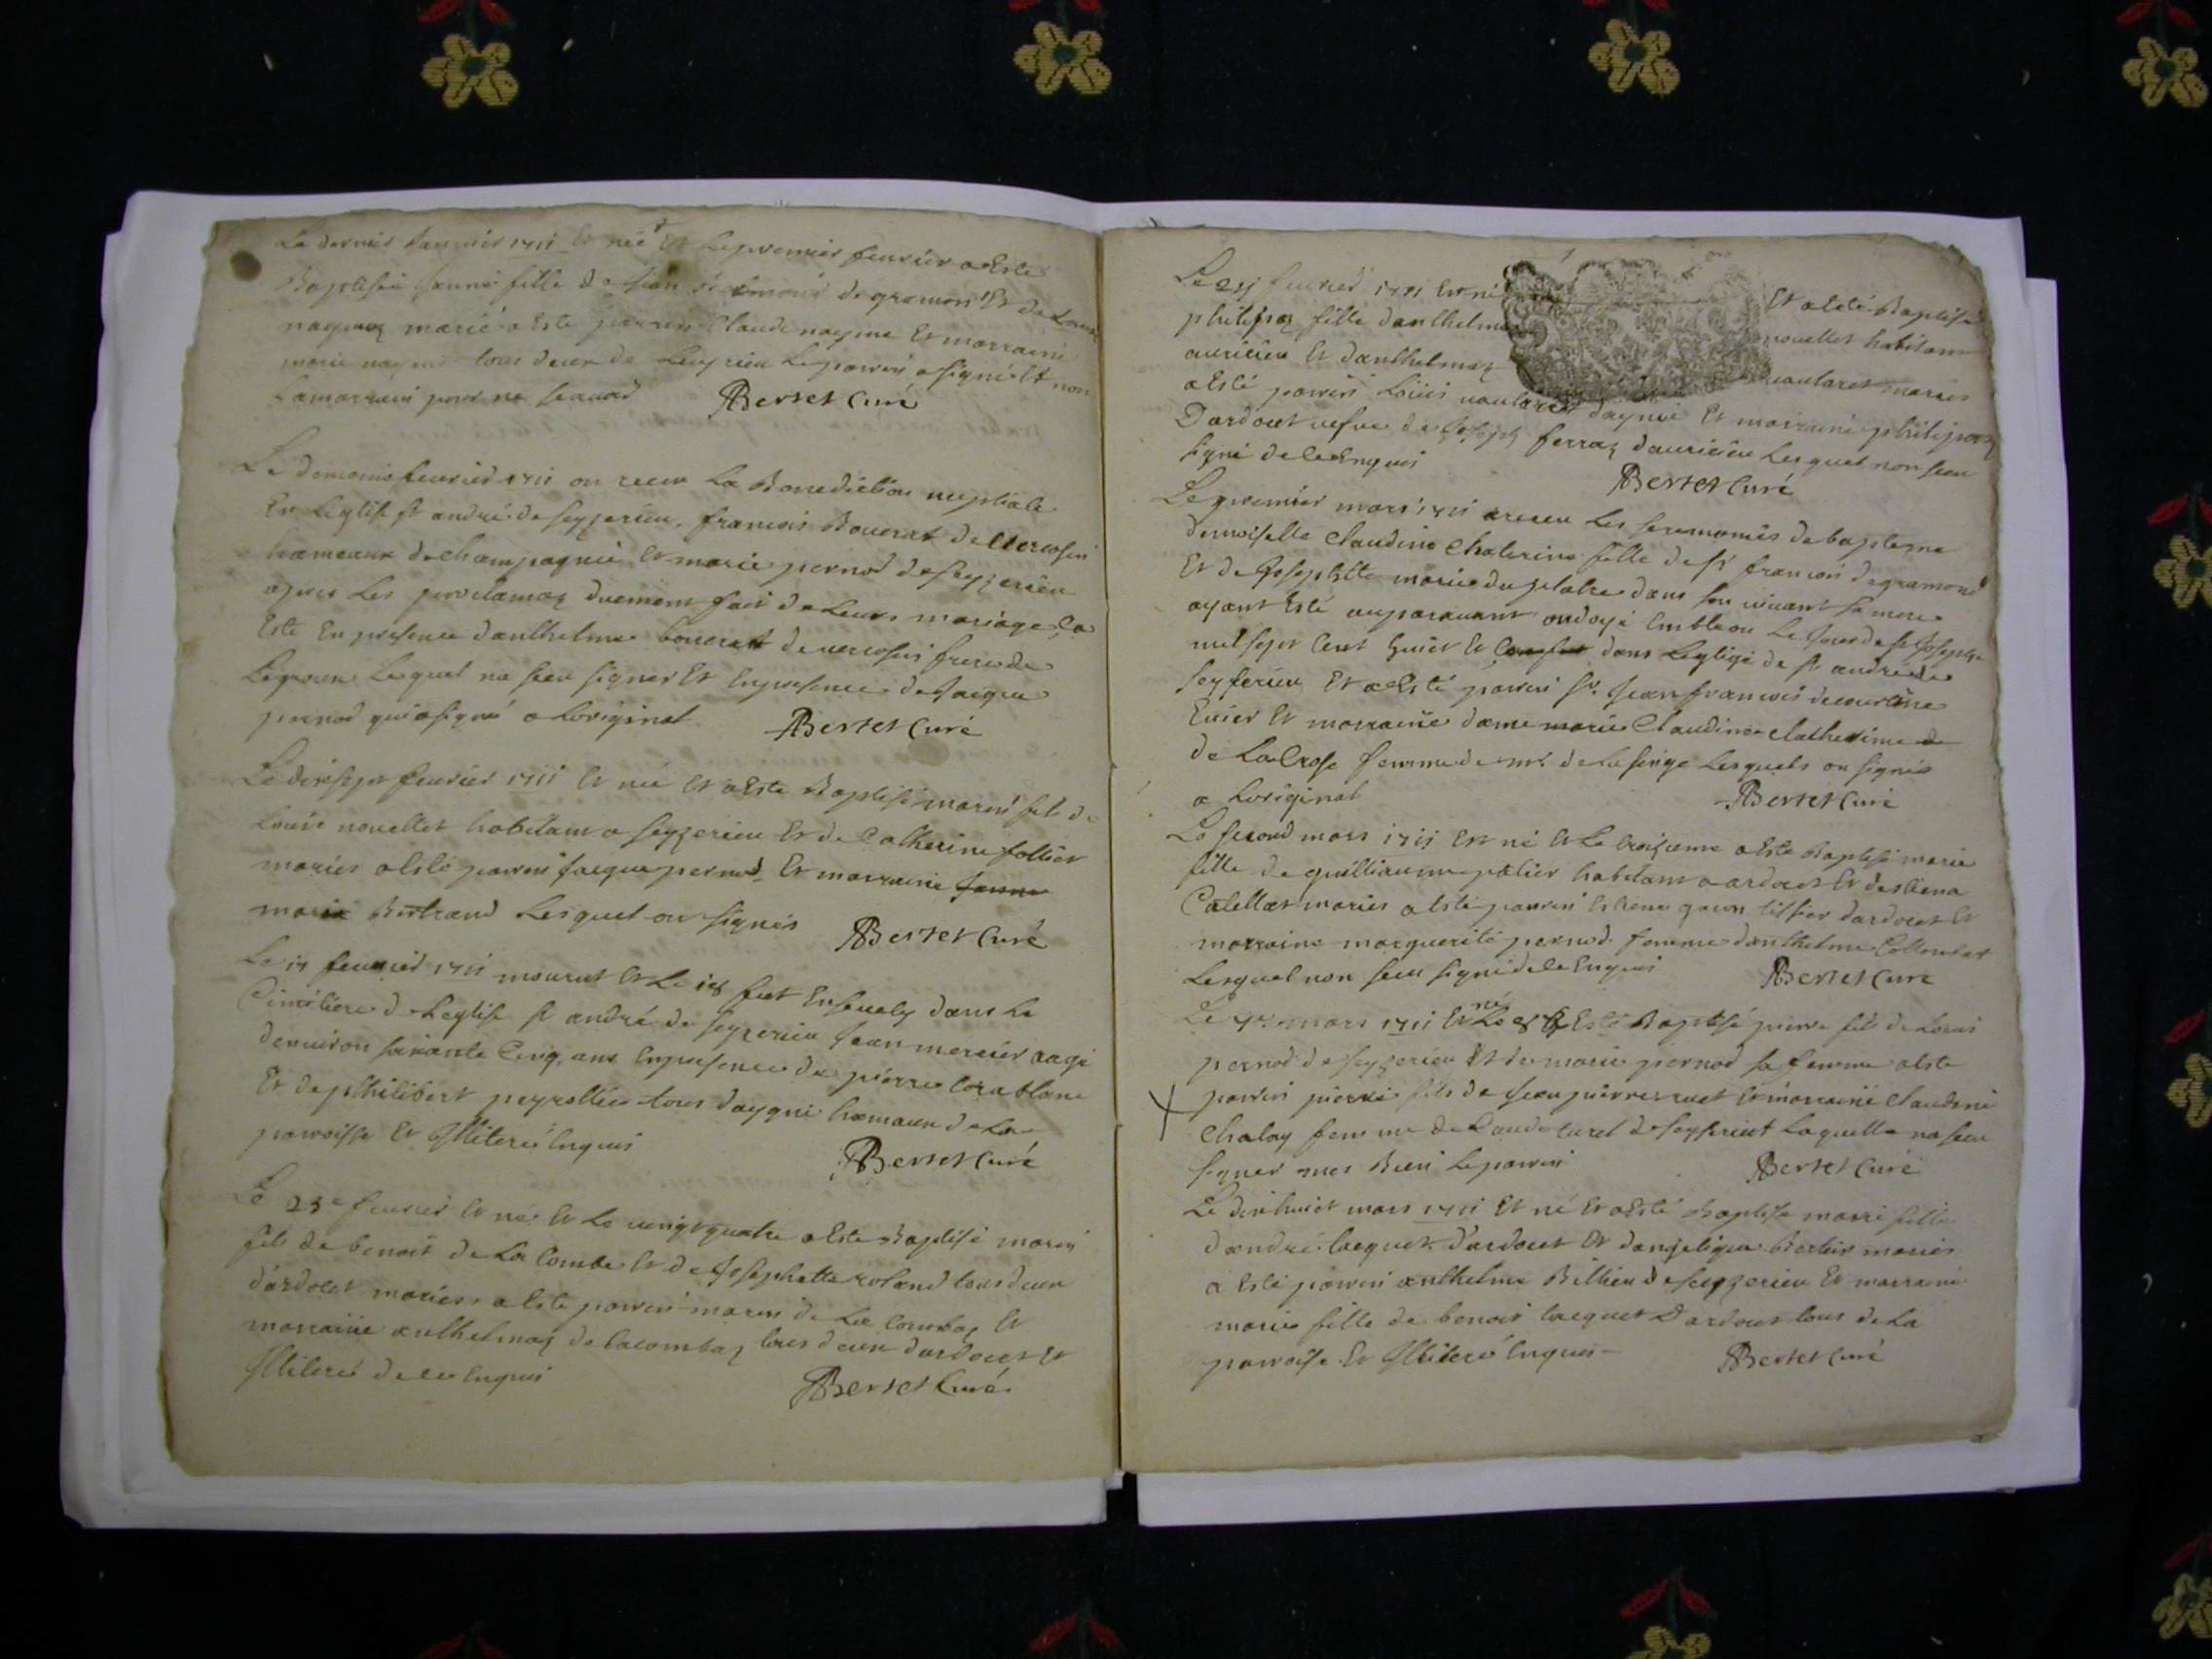 Le dernier Janvier 1711 Et née Et Le premier feuvrier a Esté
Baptisée Janne fille de Jean de gramon Et de
maries a Esté parrein Claude nayme Et marraine
marie tous deux de Leyrieu Le parrein a signé Et non
La marraine pour ne scavoir Berset Curé
Le feuvrier 1711 on receu La Benediction nuptiale
En Leglise st andré de seyzerieu, francois Bouerat de Vercosin
hameaux de champagnie Et marie pernod de seyzerieu
apres Les proclamaõ duement fait de Leurs mariage, ça
Esté En presence danthelme bouerat de vercosin frere de
Lepoux Lequel na sceu signer Et En presence de Jacque
pernod qui a signé a Loriginal Berset Curé
Le dixsept feuvrier 1711 Et né Et a Esté Baptisé marin fils de
Louis nouellet habitant a seyzerieu Et de Catherine follier
mariés a Esté parrein Jacque pernod Et marraine Janne
marie Bertrand Lesquel on signés Berset Curé
Le 17 feuvrier 1711 mourut Et Le 18 fut Ensevely dans Le
Cimetiere de Leglise st andré de seyzerieu Jean mercier aagé
denuiron soixante Cinq ans En presence de pierre
Et de philibert peyrollier tous dayguie hameaux de La
parroisse Et Illiteré Enquis Berset Curé
Le 23e feuvrier Et né Et Le uingt quatre a Esté Baptisé marin
fils de benoit de La Combe Et de Josephette roland tous deux
dardocet mariés a Esté parrein marin de La Combaz Et
marraine anthelmaz de Lacombaz tous deux dardocet Et
Illiteré de ce Enquis Berset Curé
Le feuvrier 1711 Est né Et a Esté Baptisé
philipaz fille danthelme nouellet habitant
aurieieu Et danthelmaz uautaret mariés
a Esté parrein Loüis uautaret dayguie Et marraine philipaz
Dardocet uefue de Joseph ferraz Lesquel non sceu
signé de ce Enquis Berset Curé
Le premier mars 1711 a receu Les seremonies de bapteme
demoiselle Claudine Chaterine fille de sr francois de gramond
Et de Josephte marie dans son uiuant sa mere
ayant Esté auparauant ondoyé Le Jour de st Joseph
mil sept Cent huict Et dans Leglise de st andré de
seyserieu Et a Esté parrein sr. Jean francois
Et marraine dame marie Claudine Catherine de
de La Crose femme de mr. de Lesquels on signés
a Loriginal Berset Curé
Le second mars 1711 Est né Et Le troizieme a Esté Baptisé marie
fille de guilliaume patier habitant a ardocet Et destiena
Catellat mariés a Esté parrein Estiene dardocet Et
marraine marguerite pernod femme danthelme Collombat
Lesquel non sceu signé de ce Enquis Berset Curé
Le 7e mars 1711 Et né Le 8 Esté Baptisé pierre fils de Louis
pernod de seyzerieu Et de marie pernod sa femme a Esté
parrein pierre fils de Jean pierre Et marraine Claudine
Chalay femme de Claude de seyserieu Laquelle na sceu
signer mes Bien Le parrein Berset Curé
Le dixhuict mars 1711 Et né Et a Esté Baptisé marie fille
dandré Jacquet dardocet Et dangelique Bertier mariés
a Esté parrein anthelme Billieu de seyzerieu Et marraine
marie fille de benoit Jacquet Dardocet tous de La
parroisse Et Illiteré Enquis Berset Curé